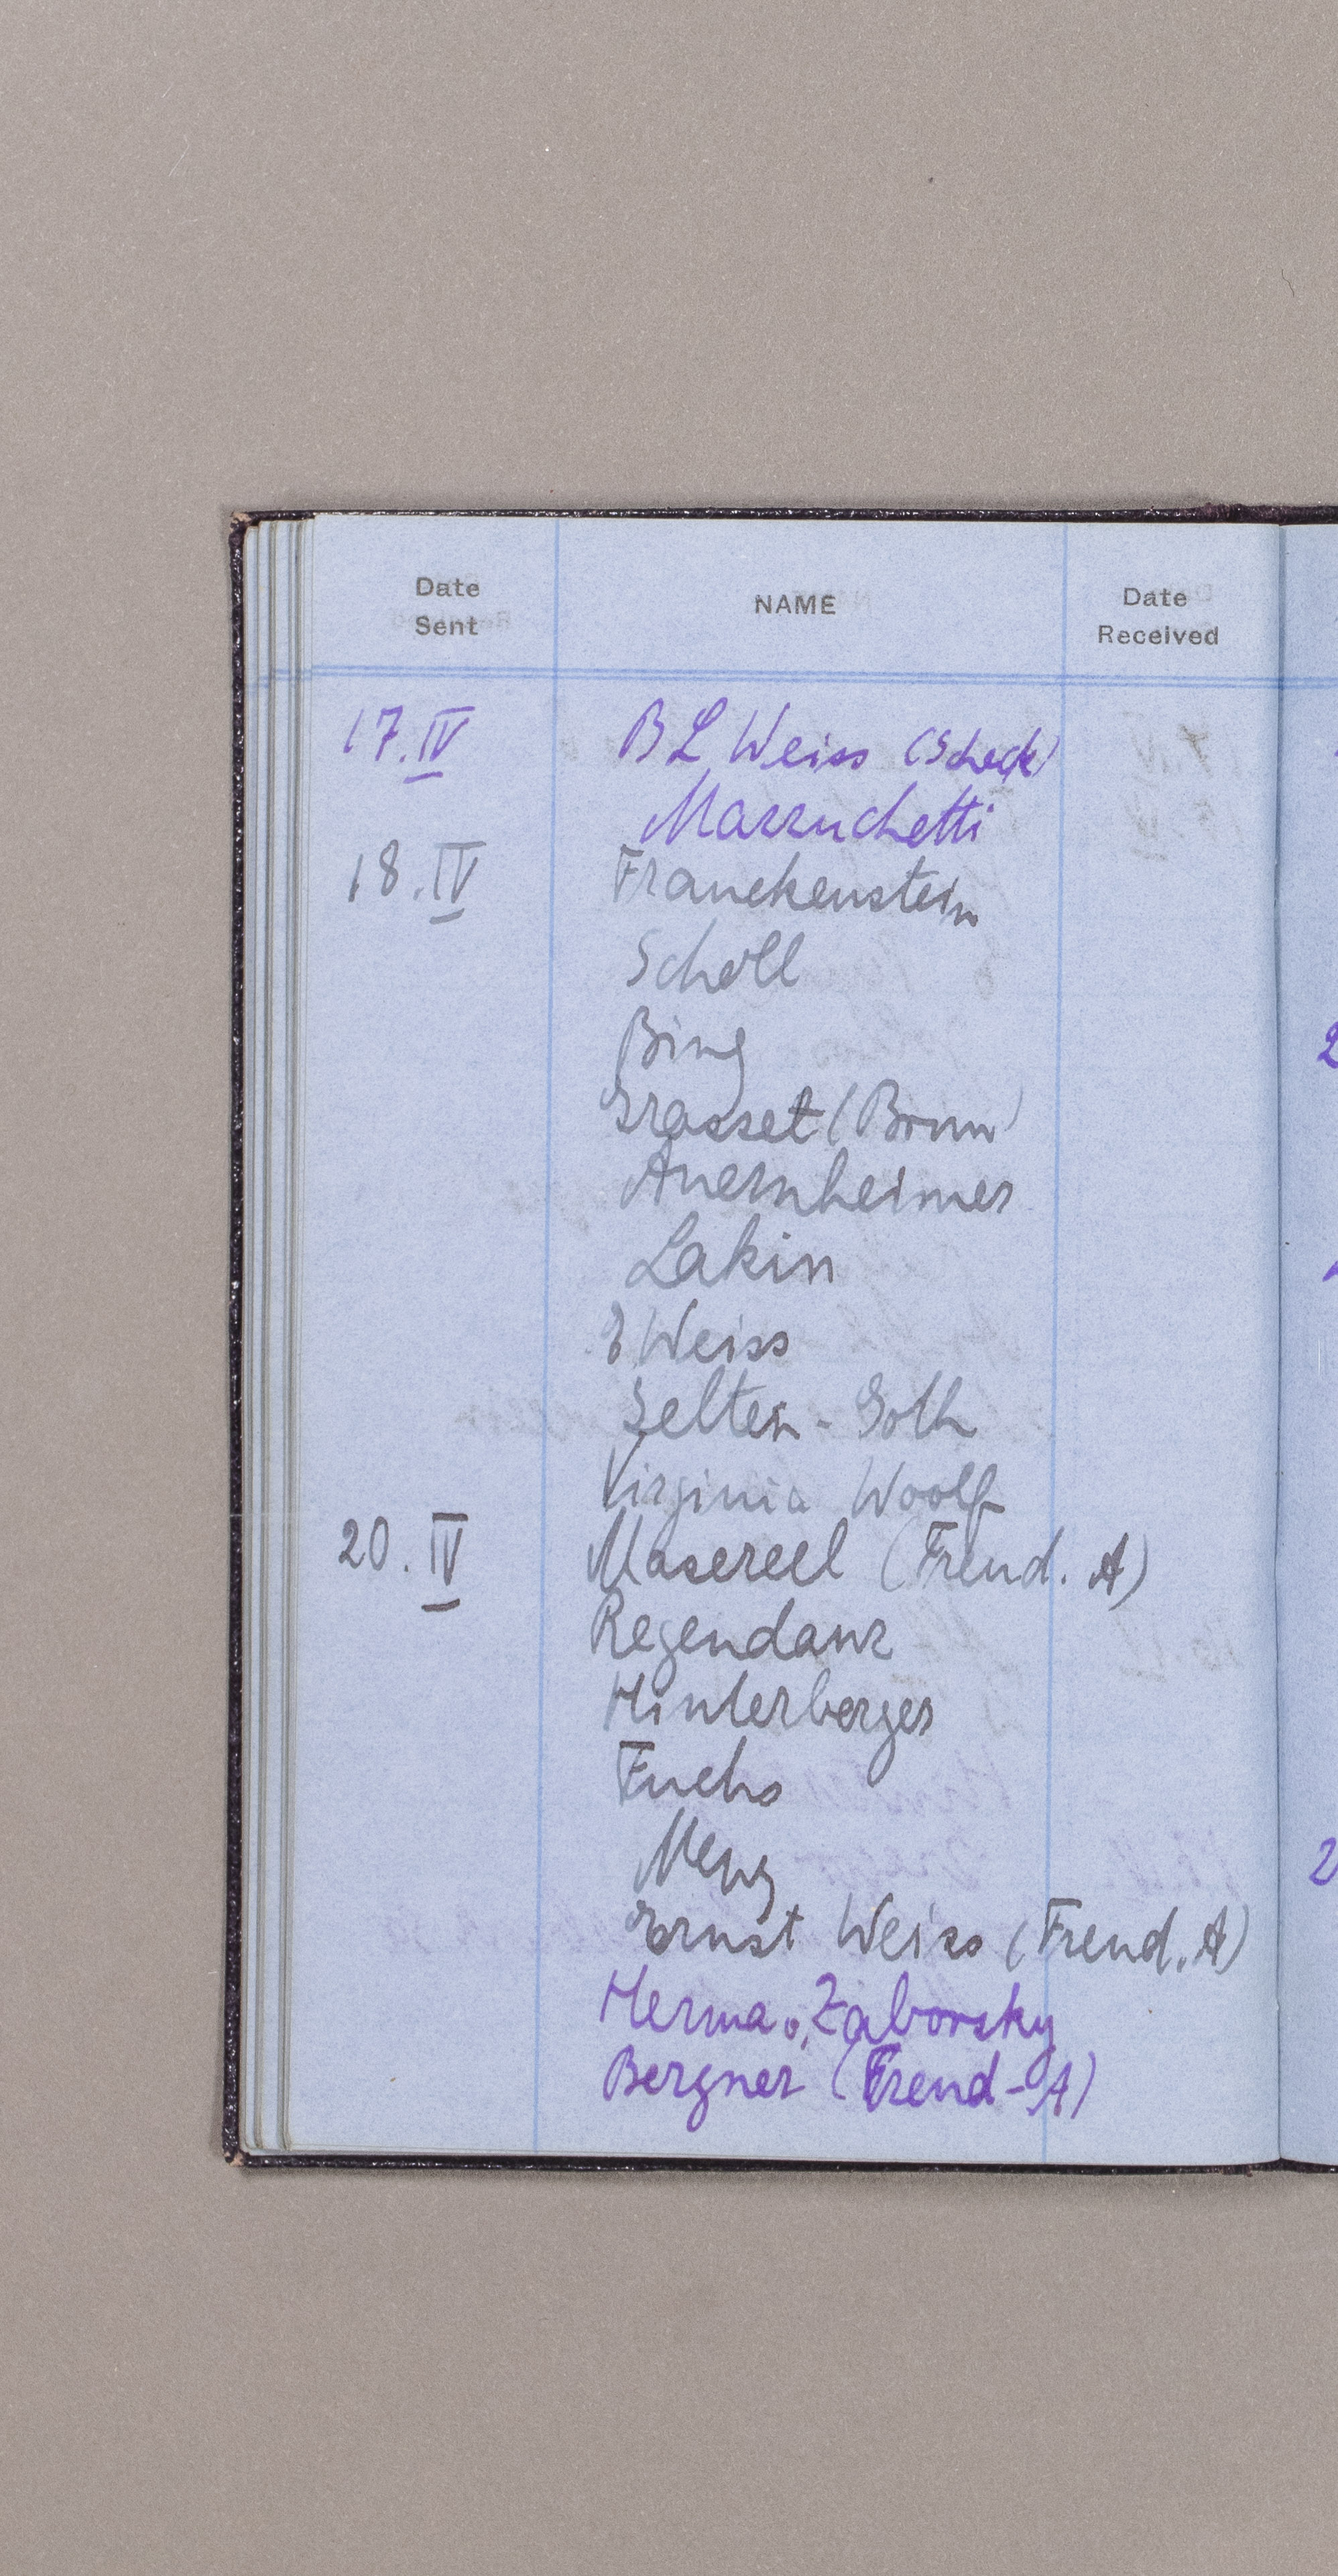 Date Sent NAME Date Received
17.IV B L Weiss (Scheck)
Mazzuchetti
18.IV Franckenstein
Scholl
Bing
Grasset (Brun)
Auernheimer
Lakin
E Weiss
Selten - Goth
Virginia Woolf
20.IV Masereel (Freud. A)
Regendanz
Hinterberger
Fuchs
Meng
Ernst Weiss (Freud. A)
Herma v. Zaborsky
Bergner (Freud - A)